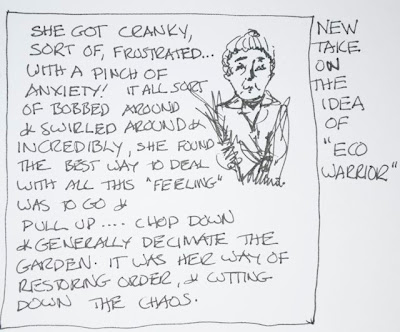 SHE GOT CRANKY,
SORT OF, FRUSTRATED...
WITH A PINCH OF
ANXIETY! IT ALL SORT
OF BOBBED AROUND
& SWIRLED AROUND &
INCREDIBLY, SHE FOUND
THE BEST WAY TO DEAL
WITH ALL THIS "FEELING"
WAS TO GO &
PULL UP.... CHOP DOWN
& GENERALLY DECIMATE THE
GARDEN. IT WAS HER WAY OF
RESTORING ORDER, & CUTTING
DOWN THE CHAOS.
NEW
TAKE
ON
THE
IDEA
OF
"ECO
WARRIOR"